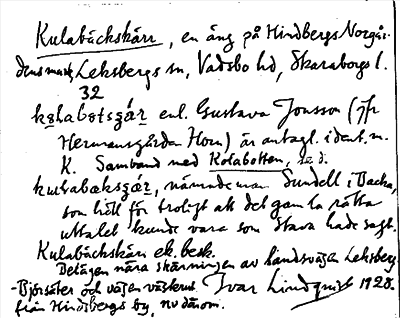 Kulabäckskärr, en äng på Hindbergs Norgår-
dens mark, Leksbergs sn, Vadsbo hd, Skaraborgs l.
32
kɷlabɷtsɟár enl. Gustava Jonsson (jfr
Hermansgården Horn) är antagl. ident. m.
K. Samband med Kolabotten, se d.
kulabæksɟár, nämndeman Sundell i Backa,
som höll för troligt att det gamla rätta
uttalet kunde vara som Stava hade sagt.
Kulabäckskärr ek. besk.
Belägen nära skärningen av landsvägen Leksberg
-Björsäter och vägen västerut
från Hindsbergs by, nv därom. Ivar Lindquist 1928.